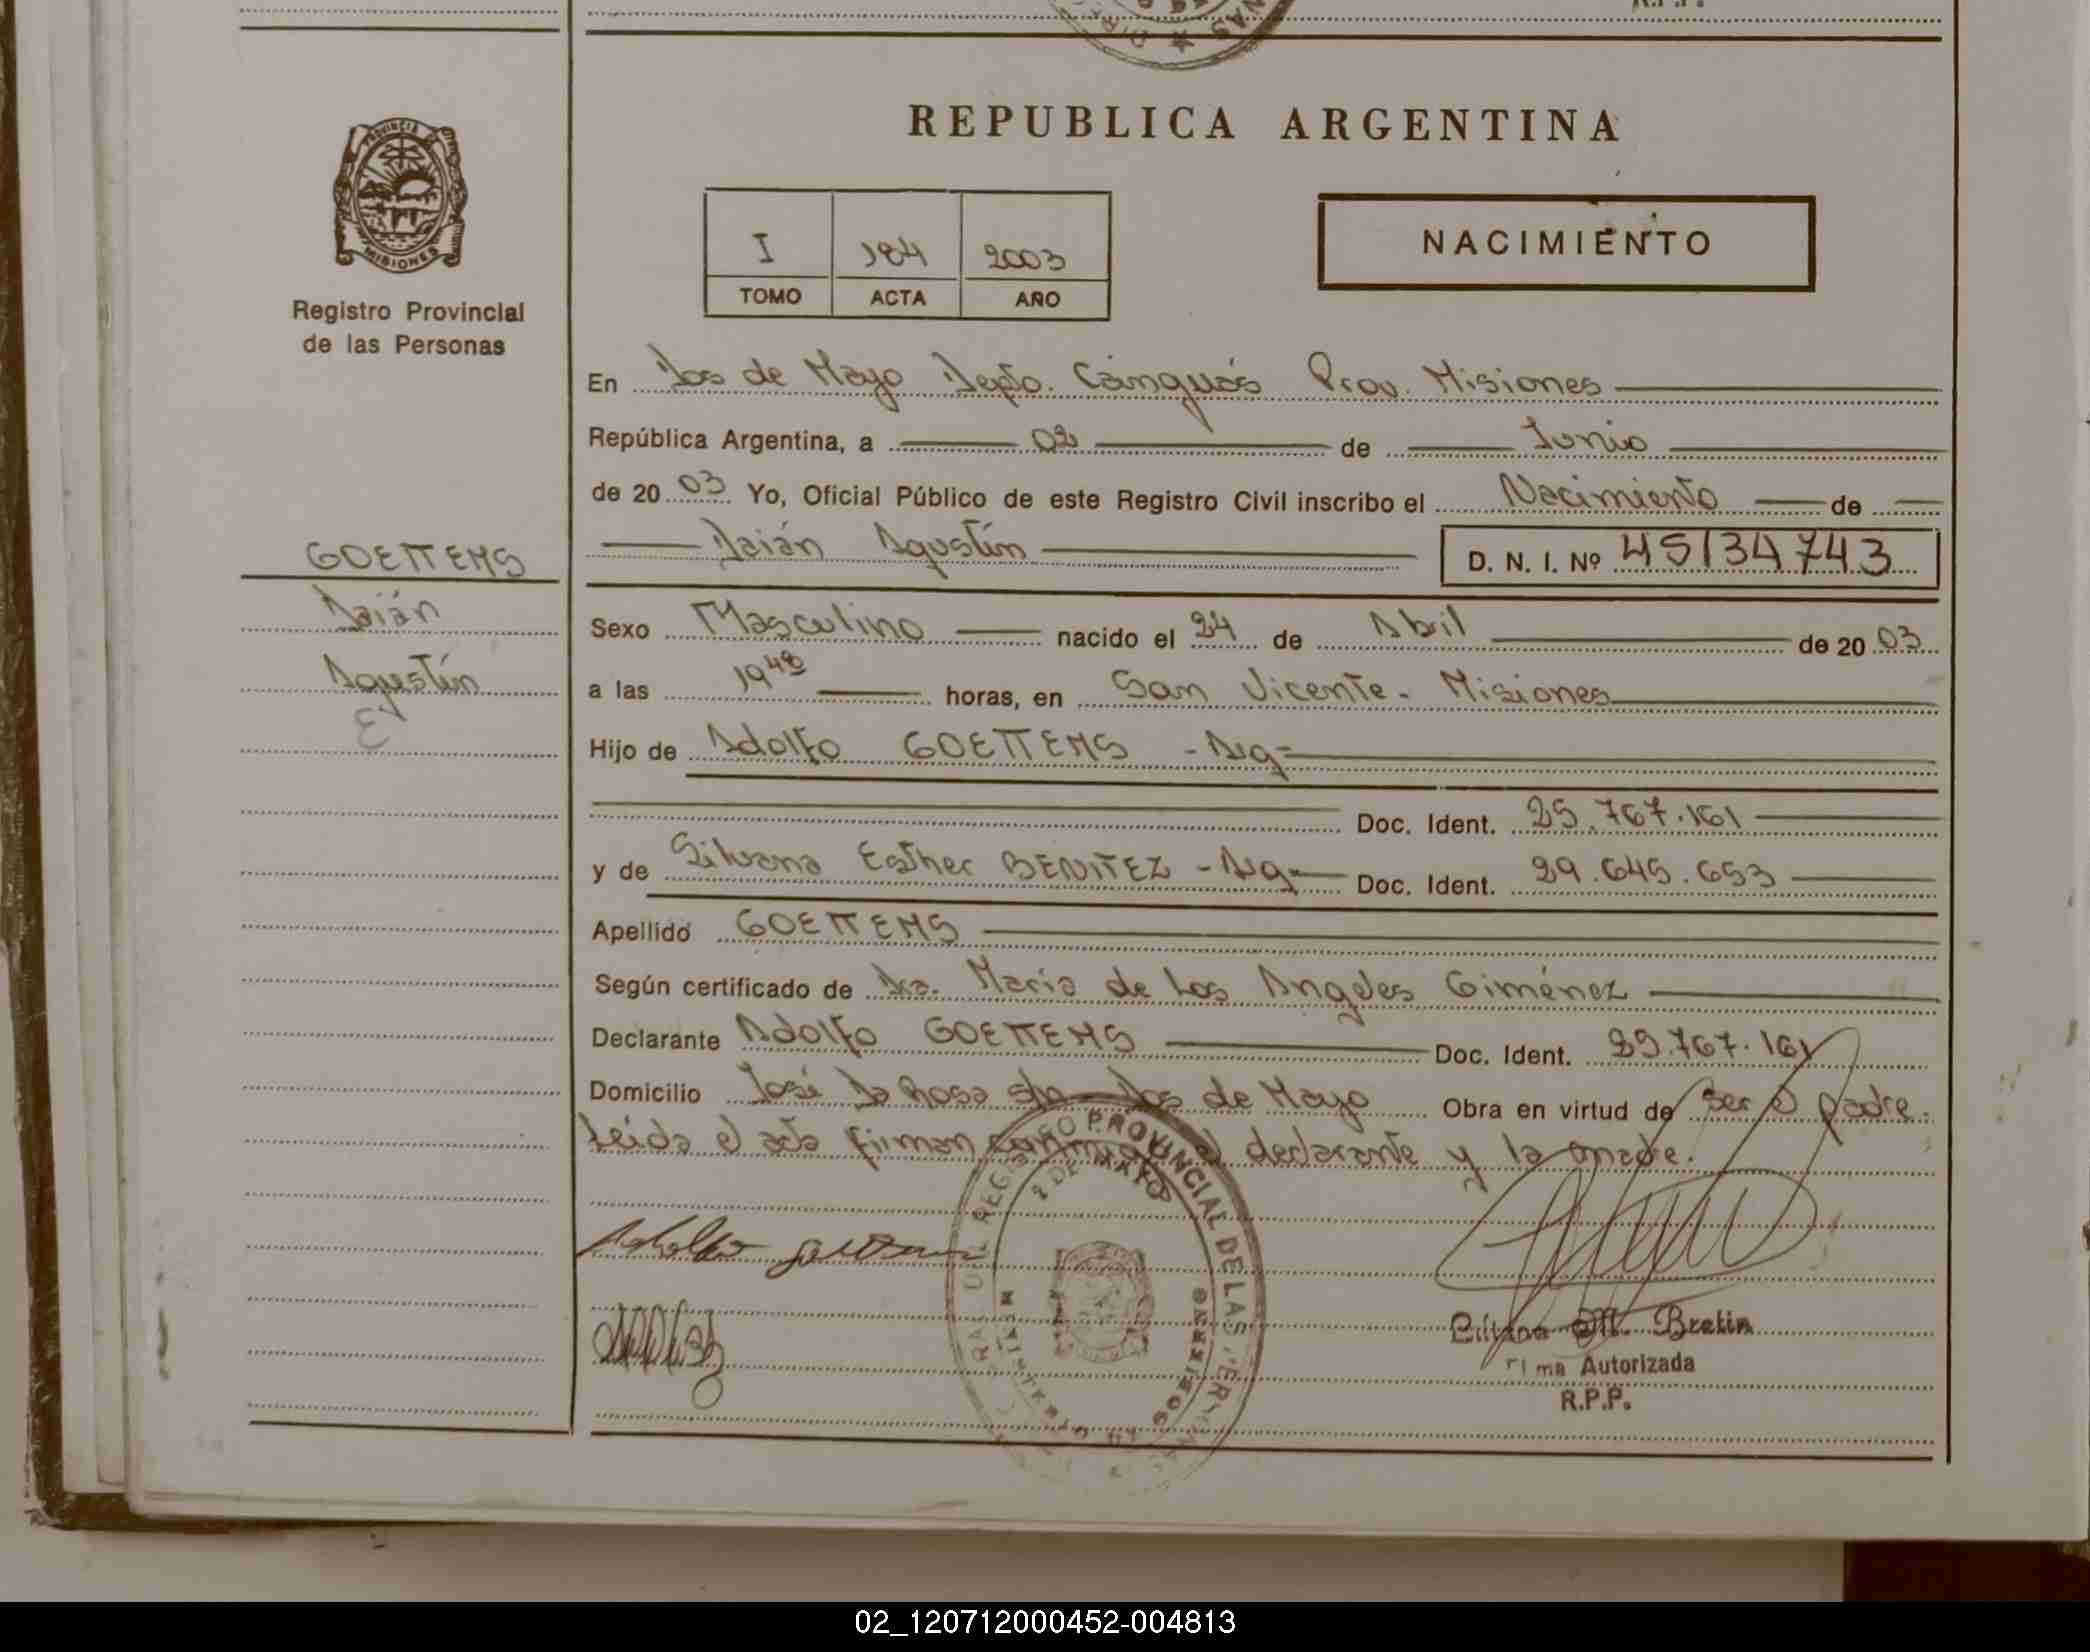 REPUBLICA ARGENTINA
PROVINCIA DE MISIONES
Registro Provincial
de las Personas
I 184 2003
TOMO ACTA AÑO
NACIMIENTO
En Dos de Mayo Depto. Cainguás Prov. Misiones
República Argentina, a 02 de Junio
de 2003 Yo, Oficial Público de este Registro Civil inscribo el Nacimiento de
Daián Agustín D. N. I. Nº 45134743
GOETTEMS
Daián
Agustín
Sexo Masculino nacido el 24 de Abril de 2003
a las 19 48 horas, en San Vicente - Misiones
Hijo de Adolfo GOETTEMS - Arg -
Doc. Ident. 25.767.161
y de Silvana Esther BENITEZ - Arg - Doc. Ident. 29.645.653
Apellido GOETTEMS
Según certificado de Dra. Maria de Los Angeles Giménez
Declarante Adolfo GOETTEMS Doc. Ident. 25.767.161
Domicilio José Da Rosa s/n Dos de Mayo Obra en virtud de ser el padre.
Leida el acta firman conmigo el declarante y la madre.
REGISTRO PROVINCIAL DE LAS PERSONAS
2 DE MAYO
MISIONES
Adolfo Goettems
M. Bretin
Firma Autorizada
R.P.P.
02_120712000452-004813